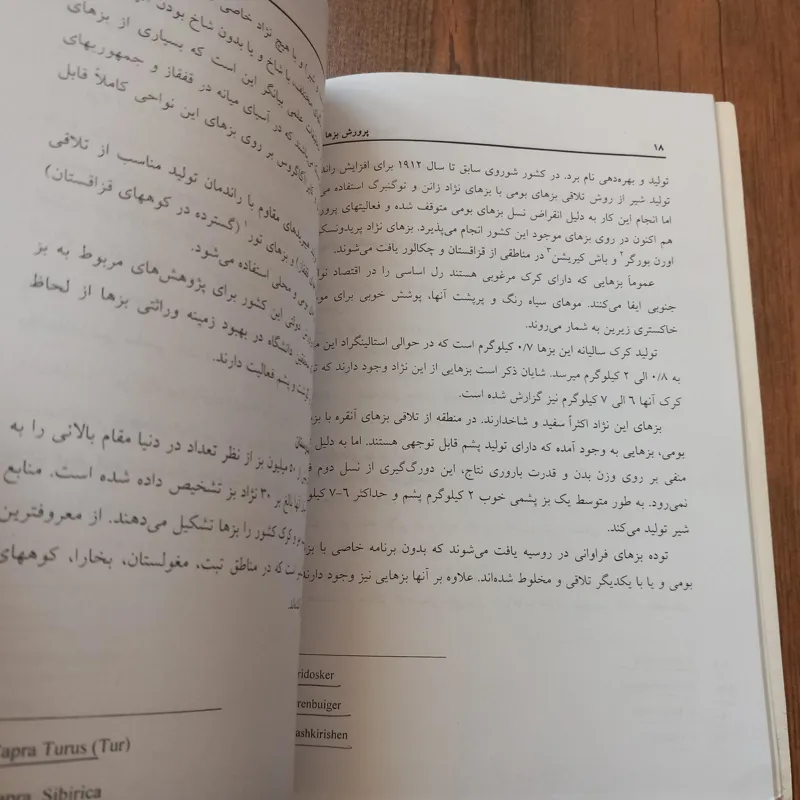 ۱۸ پرورش بزها
تولید و بهره‌دهی نام برد. در کشور شوروی سابق تا سال ۱۹۱۲ برای افزایش
تولید شیر از روش تلاقی بزهای بومی با بزهای نژاد زانن و توگنبرگ استفاده
اما انجام این کار به دلیل انقراض نسل بزهای بومی متوقف شده و فعالیتهای
هم اکنون در روی بزهای موجود این کشور انجام می‌پذیرد. بزهای نژاد
اورن بورگر۲ و باش کیریشن۳ در مناطقی از قزاقستان و چکالور یافت می‌شوند.
عموماً بزهایی که دارای کرک مرغوبی هستند رل اساسی را در اقتصاد
جنوبی ایفا می‌کنند. موهای سیاه رنگ و پرپشت آنها، پوشش خوبی برای
خاکستری زیرین به شمار می‌روند.
تولید کرک سالیانه این بزها ۰/۷ کیلوگرم است که در حوالی استالینگراد این
به ۰/۸ الی ۲ کیلوگرم میرسد. شایان ذکر است بزهایی از این نژاد وجود دارند که
کرک آنها ۶ الی ۷ کیلوگرم نیز گزارش شده است.
بزهای این نژاد اکثراً سفید و شاخدارند. در منطقه از تلاقی بزهای آنقره با
بومی، بزهایی به وجود آمده که دارای تولید پشم قابل توجهی هستند. اما به دلیل
منفی بر روی وزن بدن و قدرت باروری نتاج، این دورگ‌گیری از نسل دوم
نمی‌رود. به طور متوسط یک بز پشمی خوب ۲ کیلوگرم پشم و حداکثر ۶-۷
شیر تولید می‌کند.
توده بزهای فراوانی در روسیه یافت می‌شوند که بدون برنامه خاصی با
بومی و یا با یکدیگر تلاقی و مخلوط شده‌اند. علاوه بر آنها بزهایی نیز وجود
ridosker
renbuiger
ashkirishen
و یا هیچ نژاد خاصی
با شاخ و یا بدون شاخ بودن
بیانگر این است که بسیاری از بزهای
که در آسیای میانه در قفقاز و جمهوریهای
بر روی بزهای این نواحی کاملاً قابل
مقاوم با راندمان تولید مناسب از تلاقی
و بزهای تور۱ (گسترده در کوههای قزاقستان)
و محلی استفاده می‌شود.
دولتی این کشور برای پژوهش‌های مربوط به بز
دانشگاه در بهبود زمینه وراثتی بزها از لحاظ
گوشت و پشم فعالیت دارند.
۵۰ میلیون بز از نظر تعداد در دنیا مقام بالائی را به
بالغ بر ۳۰ نژاد بز تشخیص داده شده است. منابع
و کرک کشور را بزها تشکیل می‌دهند. از معروفترین
که در مناطق تبت، مغولستان، بخارا، کوههای
apra Turus (Tur)
apra Sibirica